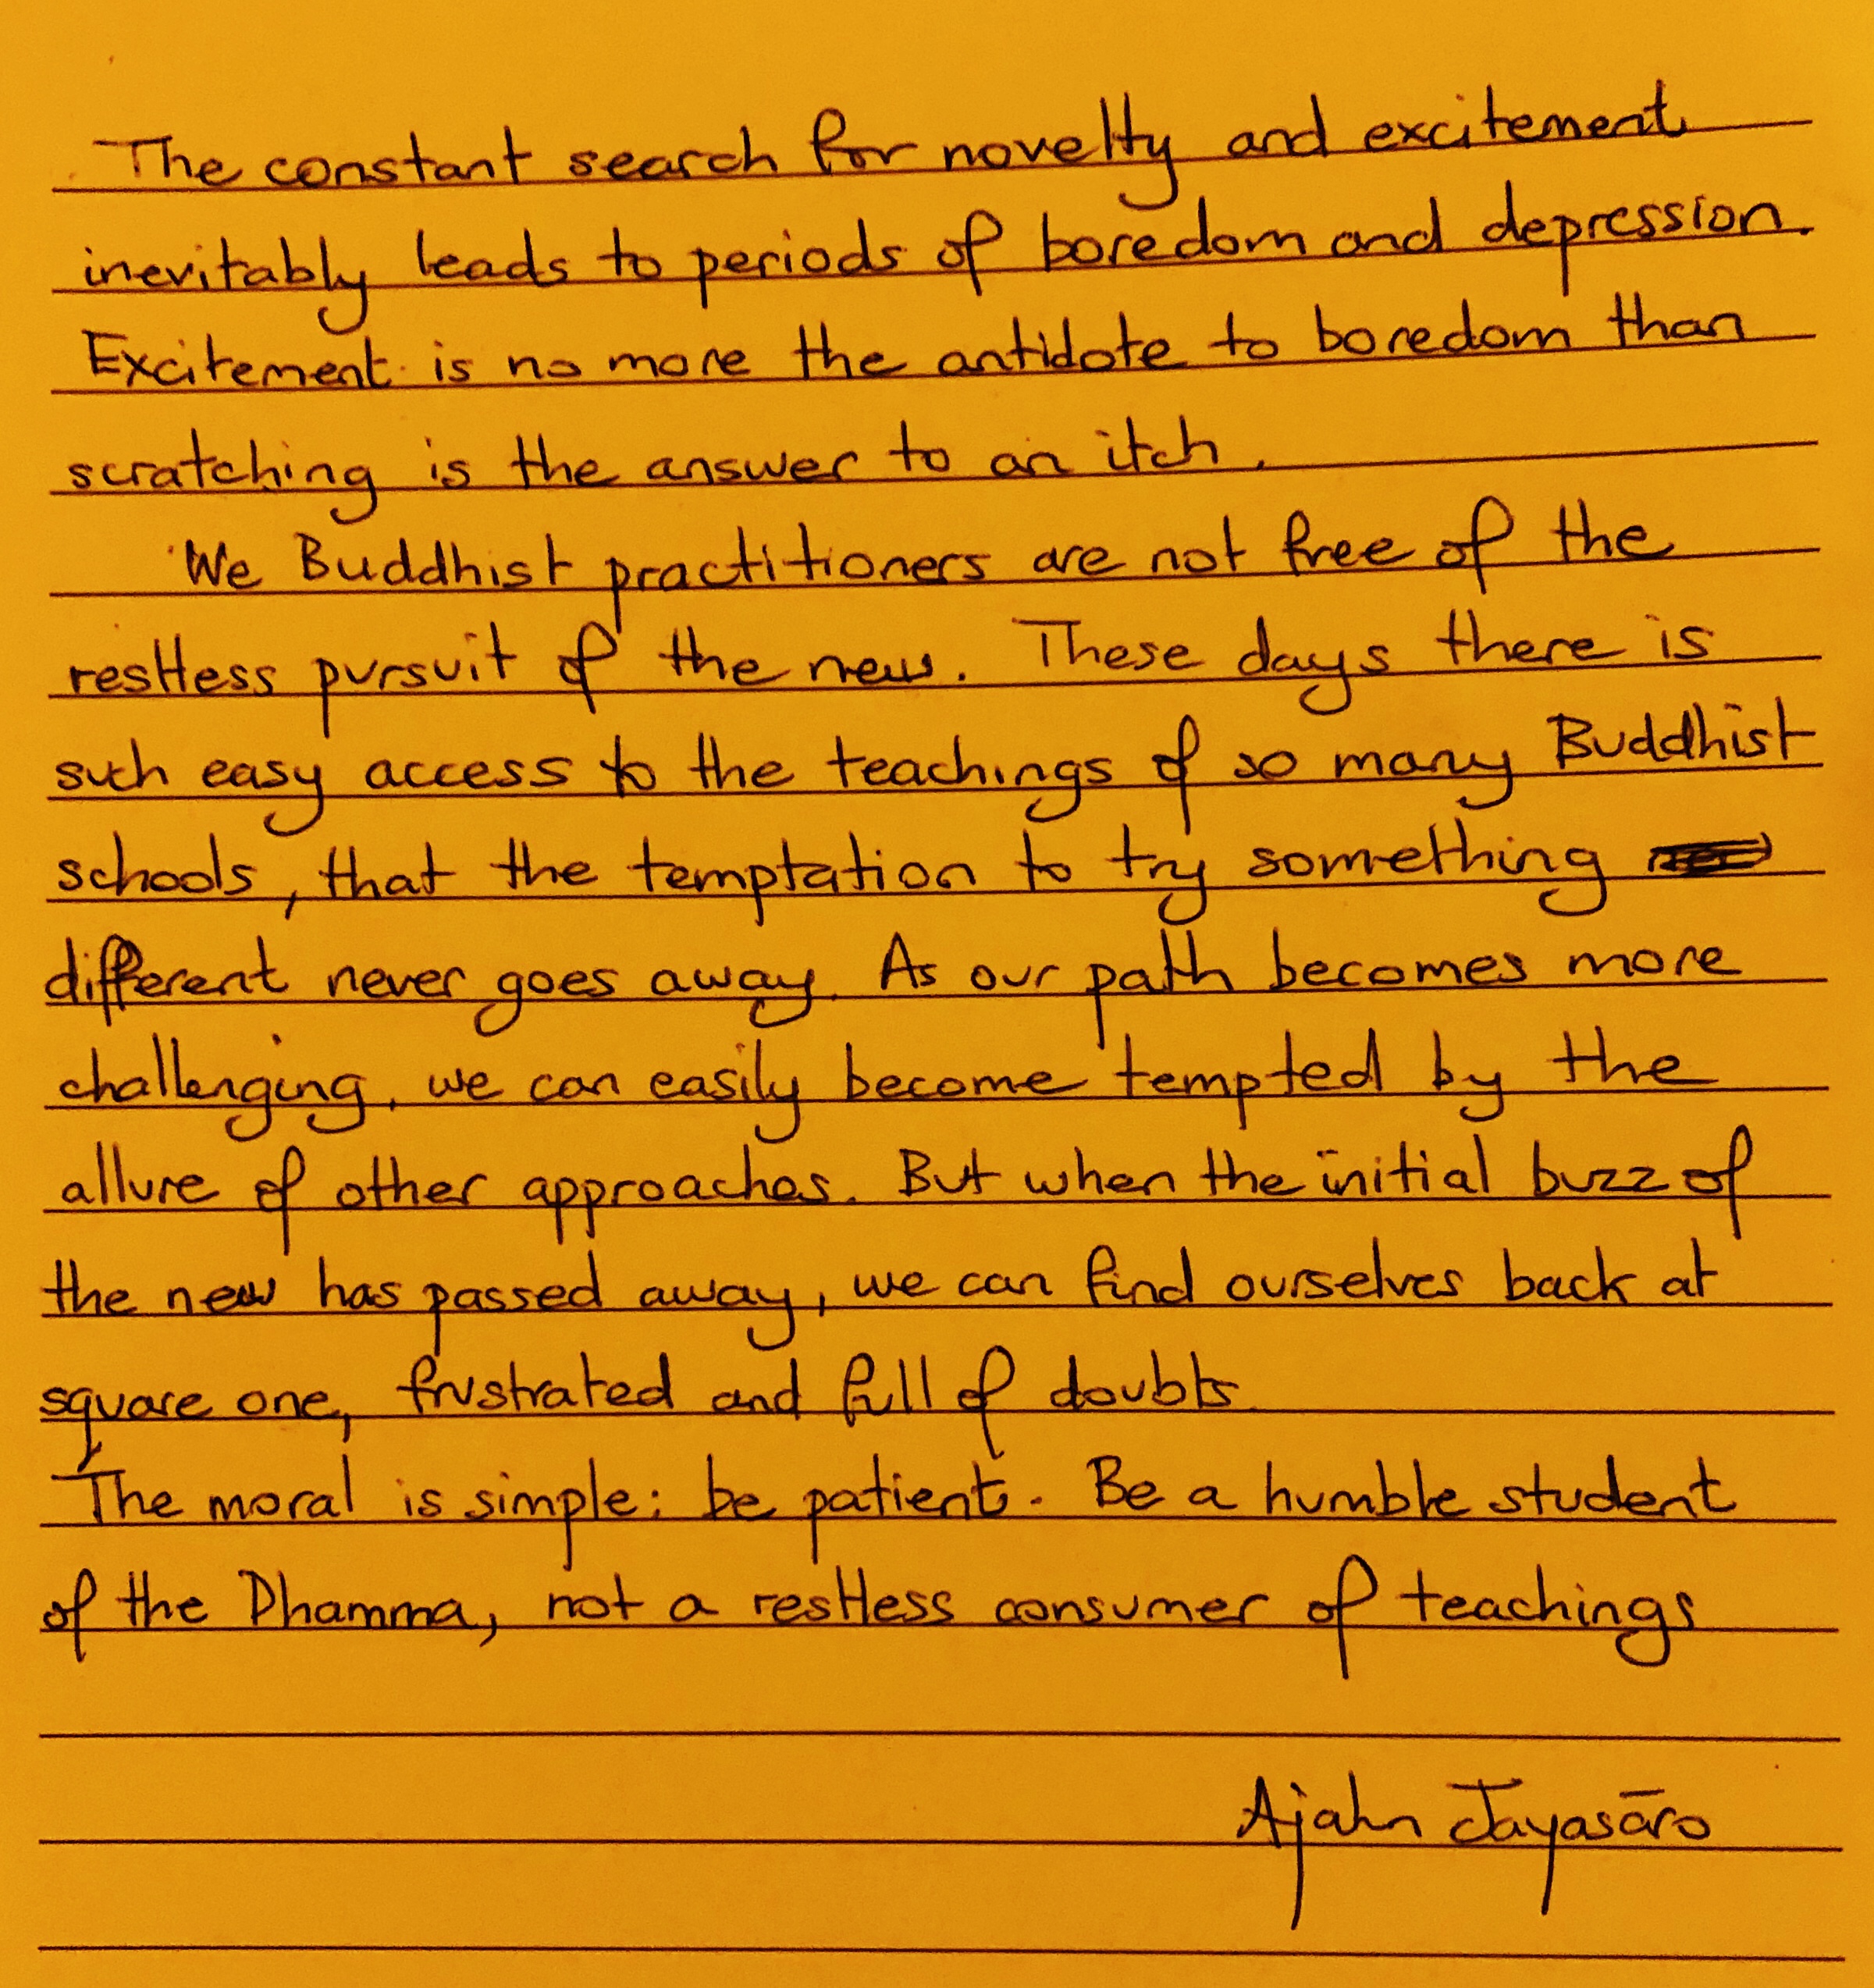 The constant search for novelty and excitement
inevitably leads to periods of boredom and depression.
Excitement is no more the antidote to boredom than
scratching is the answer to an itch.
We Buddhist practitioners are not free of the
restless pursuit of the new. These days there is
such easy access to the teachings of so many Buddhist
schools, that the temptation to try something
different never goes away. As our path becomes more
challenging, we can easily become tempted by the
allure of other approaches. But when the initial buzz of
the new has passed away, we can find ourselves back at
square one, frustrated and full of doubts.
The moral is simple: be patient. Be a humble student
of the Dhamma, not a restless consumer of teachings
Ajahn Jayasāro